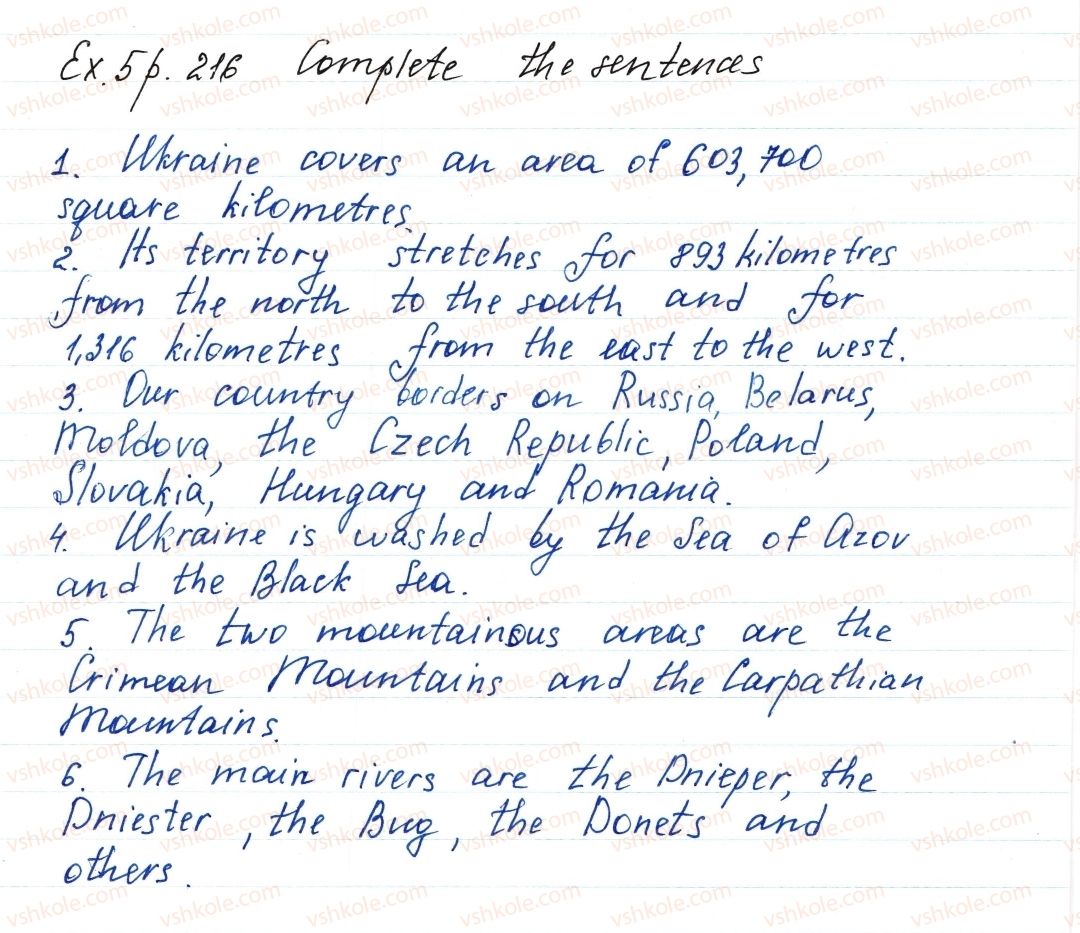 Ex. 5 p. 216 Complete the sentences
1. Ukraine covers an area of 603,700
square kilometres.
2. Its territory stretches for 893 kilometres
from the north to the south and for
1,316 kilometres from the east to the west.
3. Our country borders on Russia, Belarus,
Moldova, the Czech Republic, Poland,
Slovakia, Hungary and Romania.
4. Ukraine is washed by the Sea of Azov
and the Black Sea.
5. The two mountainous areas are the
Crimean Mountains and the Carpathian
Mountains.
6. The main rivers are the Dnieper, the
Dniester, the Bug, the Donets and
others.
vshkole.com